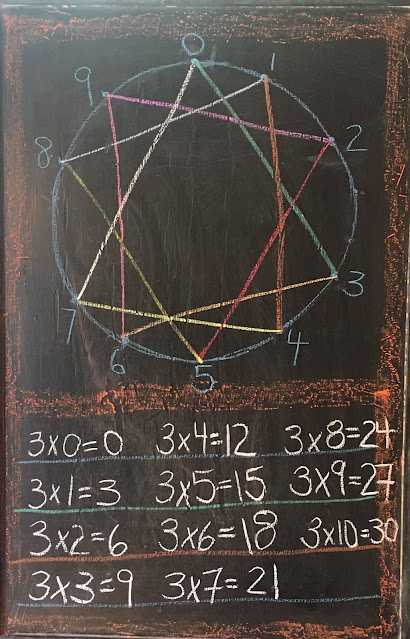 0
9 1
8 2
7 3
6 4
5
3x0=0 3x4=12 3x8=24
3x1=3 3x5=15 3x9=27
3x2=6 3x6=18 3x10=30
3x3=9 3x7=21